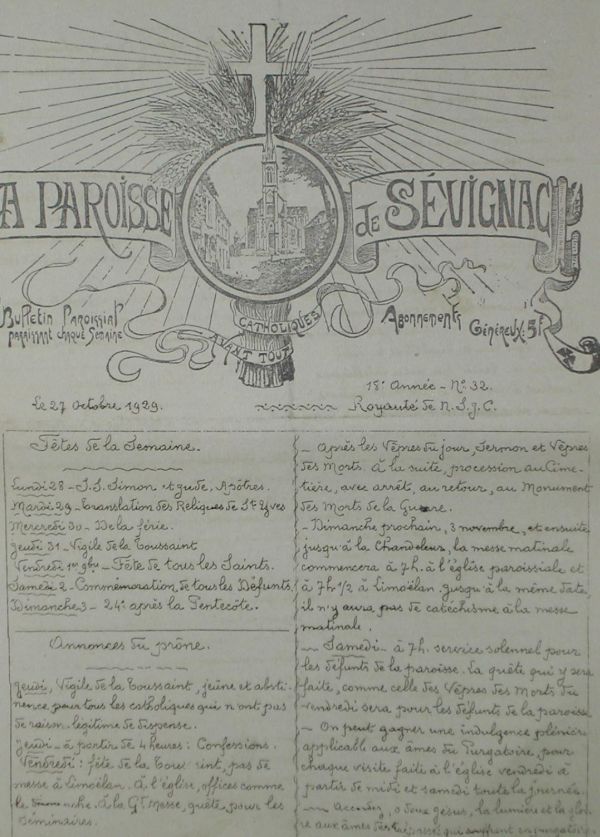 A PAROISSE de SÉVIGNAC
Bulletin Paroissial
paraissant chaque Semaine
CATHOLIQUES
AVANT TOUT
Abonnements
Généreux: 5f
18e Année - No 32.
Le 27 Octobre 1929.
Royauté de N.S.J.C.
Fêtes de la Semaine.
Lundi 28 - S.S. Simon et Jude, Apôtres.
Mardi 29 - Translation des Reliques de St Yves
Mercredi 30 - De la férie.
Jeudi 31 - Vigile de la Toussaint
Vendredi 1er 9bre - Fête de tous les Saints.
Samedi 2 - Commémoration de tous les Défunts.
Dimanche 3 - 24e après la Pentecôte.
Annonces du prône.
Jeudi, Vigile de la Toussaint, jeûne et absti-
nence pour tous les catholiques qui n'ont pas
de raison légitime de dispense.
Jeudi - à partir de 4 heures: Confessions.
Vendredi: fête de la Toussaint, pas de
messe à Limoëlan. À l'église, offices comme
le Dimanche. À la Gd Messe, quête pour les
Séminaires.
- Après les Vêpres du jour, Sermon et Vêpres
des Morts. À la suite, procession au Cime-
tière, avec arrêt, au retour, au Monument
des Morts de la Guerre.
- Dimanche prochain, 3 novembre, et ensuite
jusqu'à la Chandeleur, la messe matinale
commencera à 7h. à l'église paroissiale et
à 7h 1/2 à Limoëlan. Jusqu'à la même date,
il n'y aura pas de catéchisme à la messe
matinale.
- Samedi - à 7h. service solennel pour
les défunts de la paroisse. La quête qui y sera
faite, comme celle des Vêpres des Morts du
vendredi sera pour les défunts de la paroisse
- On peut gagner une indulgence plénière
applicable aux âmes du Purgatoire, pour
chaque visite faite à l'église vendredi à
partir de midi et samedi toute la journée.
- Accordez, o doux Jésus, la lumière et la gloi-
re aux âmes des trépassés qui souffrent en purgatoire